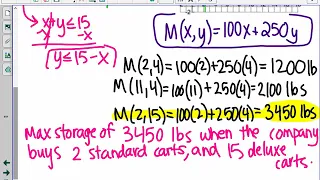 x+y≤15
-x -x
y≤15-x
M(x,y)=100x+250y
M(2,4)=100(2)+250(4)=1200lb
M(11,4)=100(11)+250(4)=2100 lbs
M(2,15)=100(2)+250(4)=3450 lbs
Max storage of 3450 lbs when the company
buys 2 standard carts, and 15 deluxe
carts.